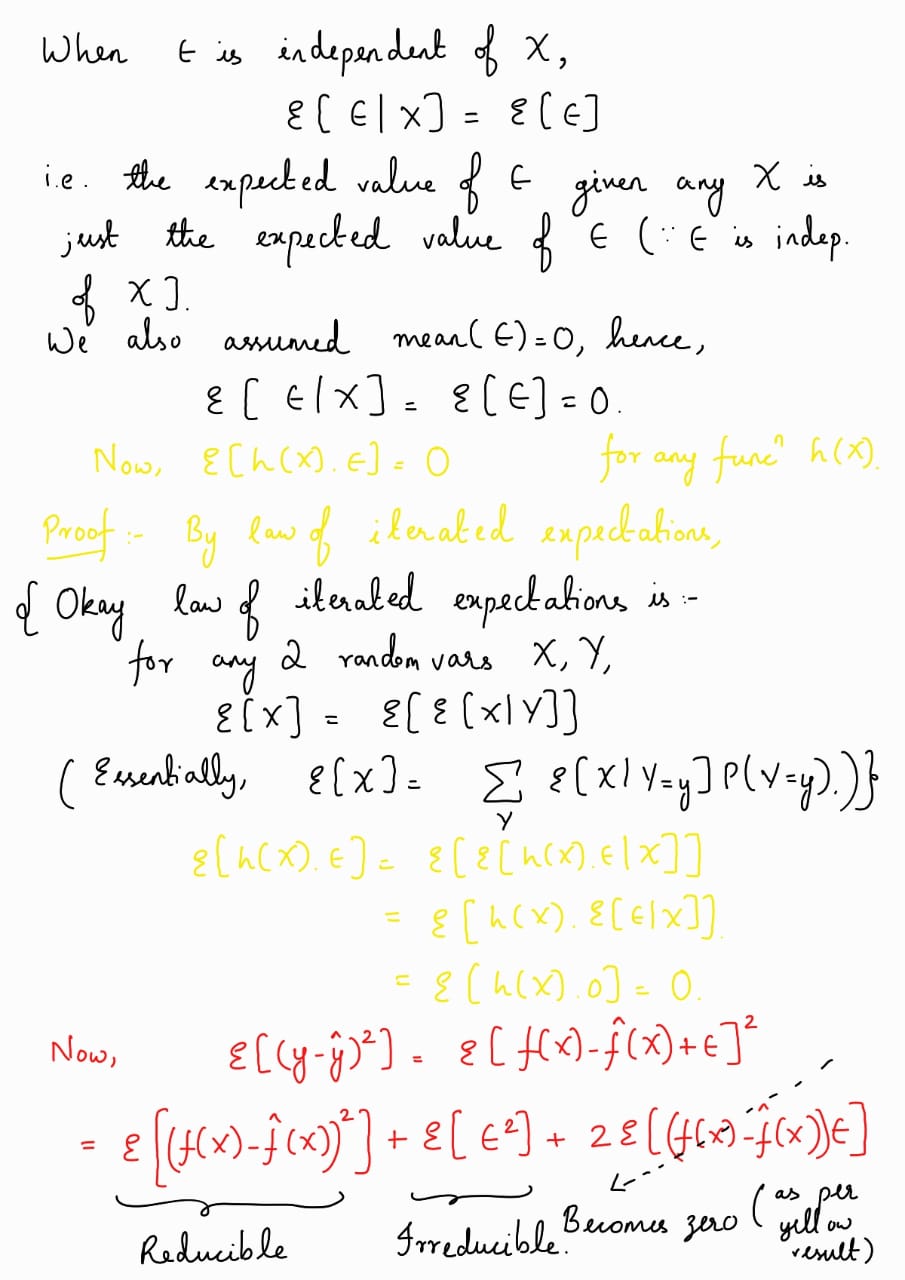 When ε is independent of X,
Ɛ[ε|X] = Ɛ[ε]
i.e. the expected value of ε given any X is
just the expected value of ε (∵ ε is indep.
of X].
We also assumed mean(ε)=0, hence,
Ɛ[ε|X] = Ɛ[ε] = 0.
Now, Ɛ[h(X).ε] = 0 for any funcⁿ h(X).
Proof :- By law of iterated expectations,
{ Okay law of iterated expectations is :-
for any 2 random vars X, Y,
Ɛ[X] = Ɛ[Ɛ[X|Y]]
(Essentially, Ɛ[X] = Σ_Y Ɛ[X|Y=y] P(Y=y).)}
Ɛ[h(X).ε] = Ɛ[Ɛ[h(X).ε|X]]
= Ɛ[h(X).Ɛ[ε|X]].
= Ɛ[h(X).0] = 0.
Now, Ɛ[(y-ŷ)²] = Ɛ[f(x)-f̂(x)+ε]²
= Ɛ[(f(x)-f̂(x))²] + Ɛ[ε²] + 2Ɛ[(f(x)-f̂(x))ε]
Reducible Irreducible. Becomes zero (as per
yellow
result)